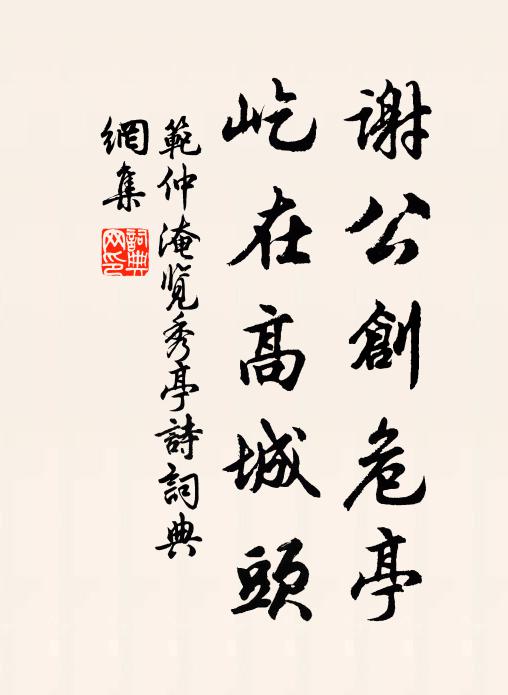 謝公創危亭
屹在高城頭
範仲淹覽秀亭詩詞典
網集
詞典
网印